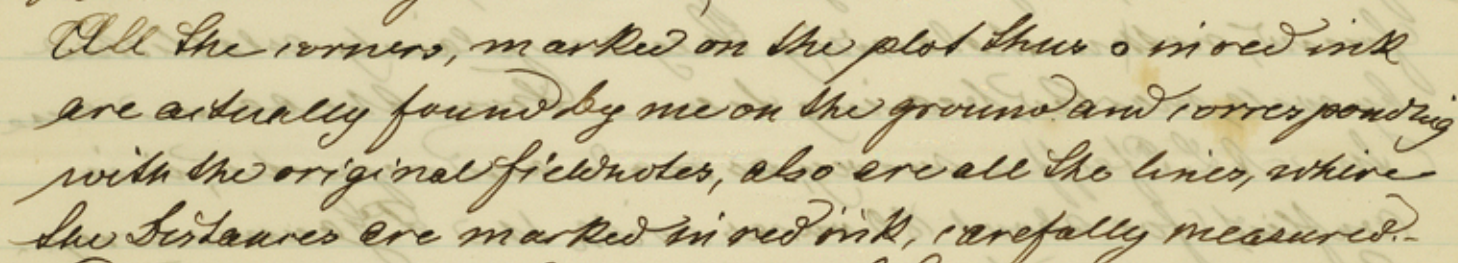 All the corners, marked on the plot thus o in red ink
are actually found by me on the ground and corresponding
with the original fieldnotes, also are all the lines, where
the Distances are marked in red ink, carefully measured.-